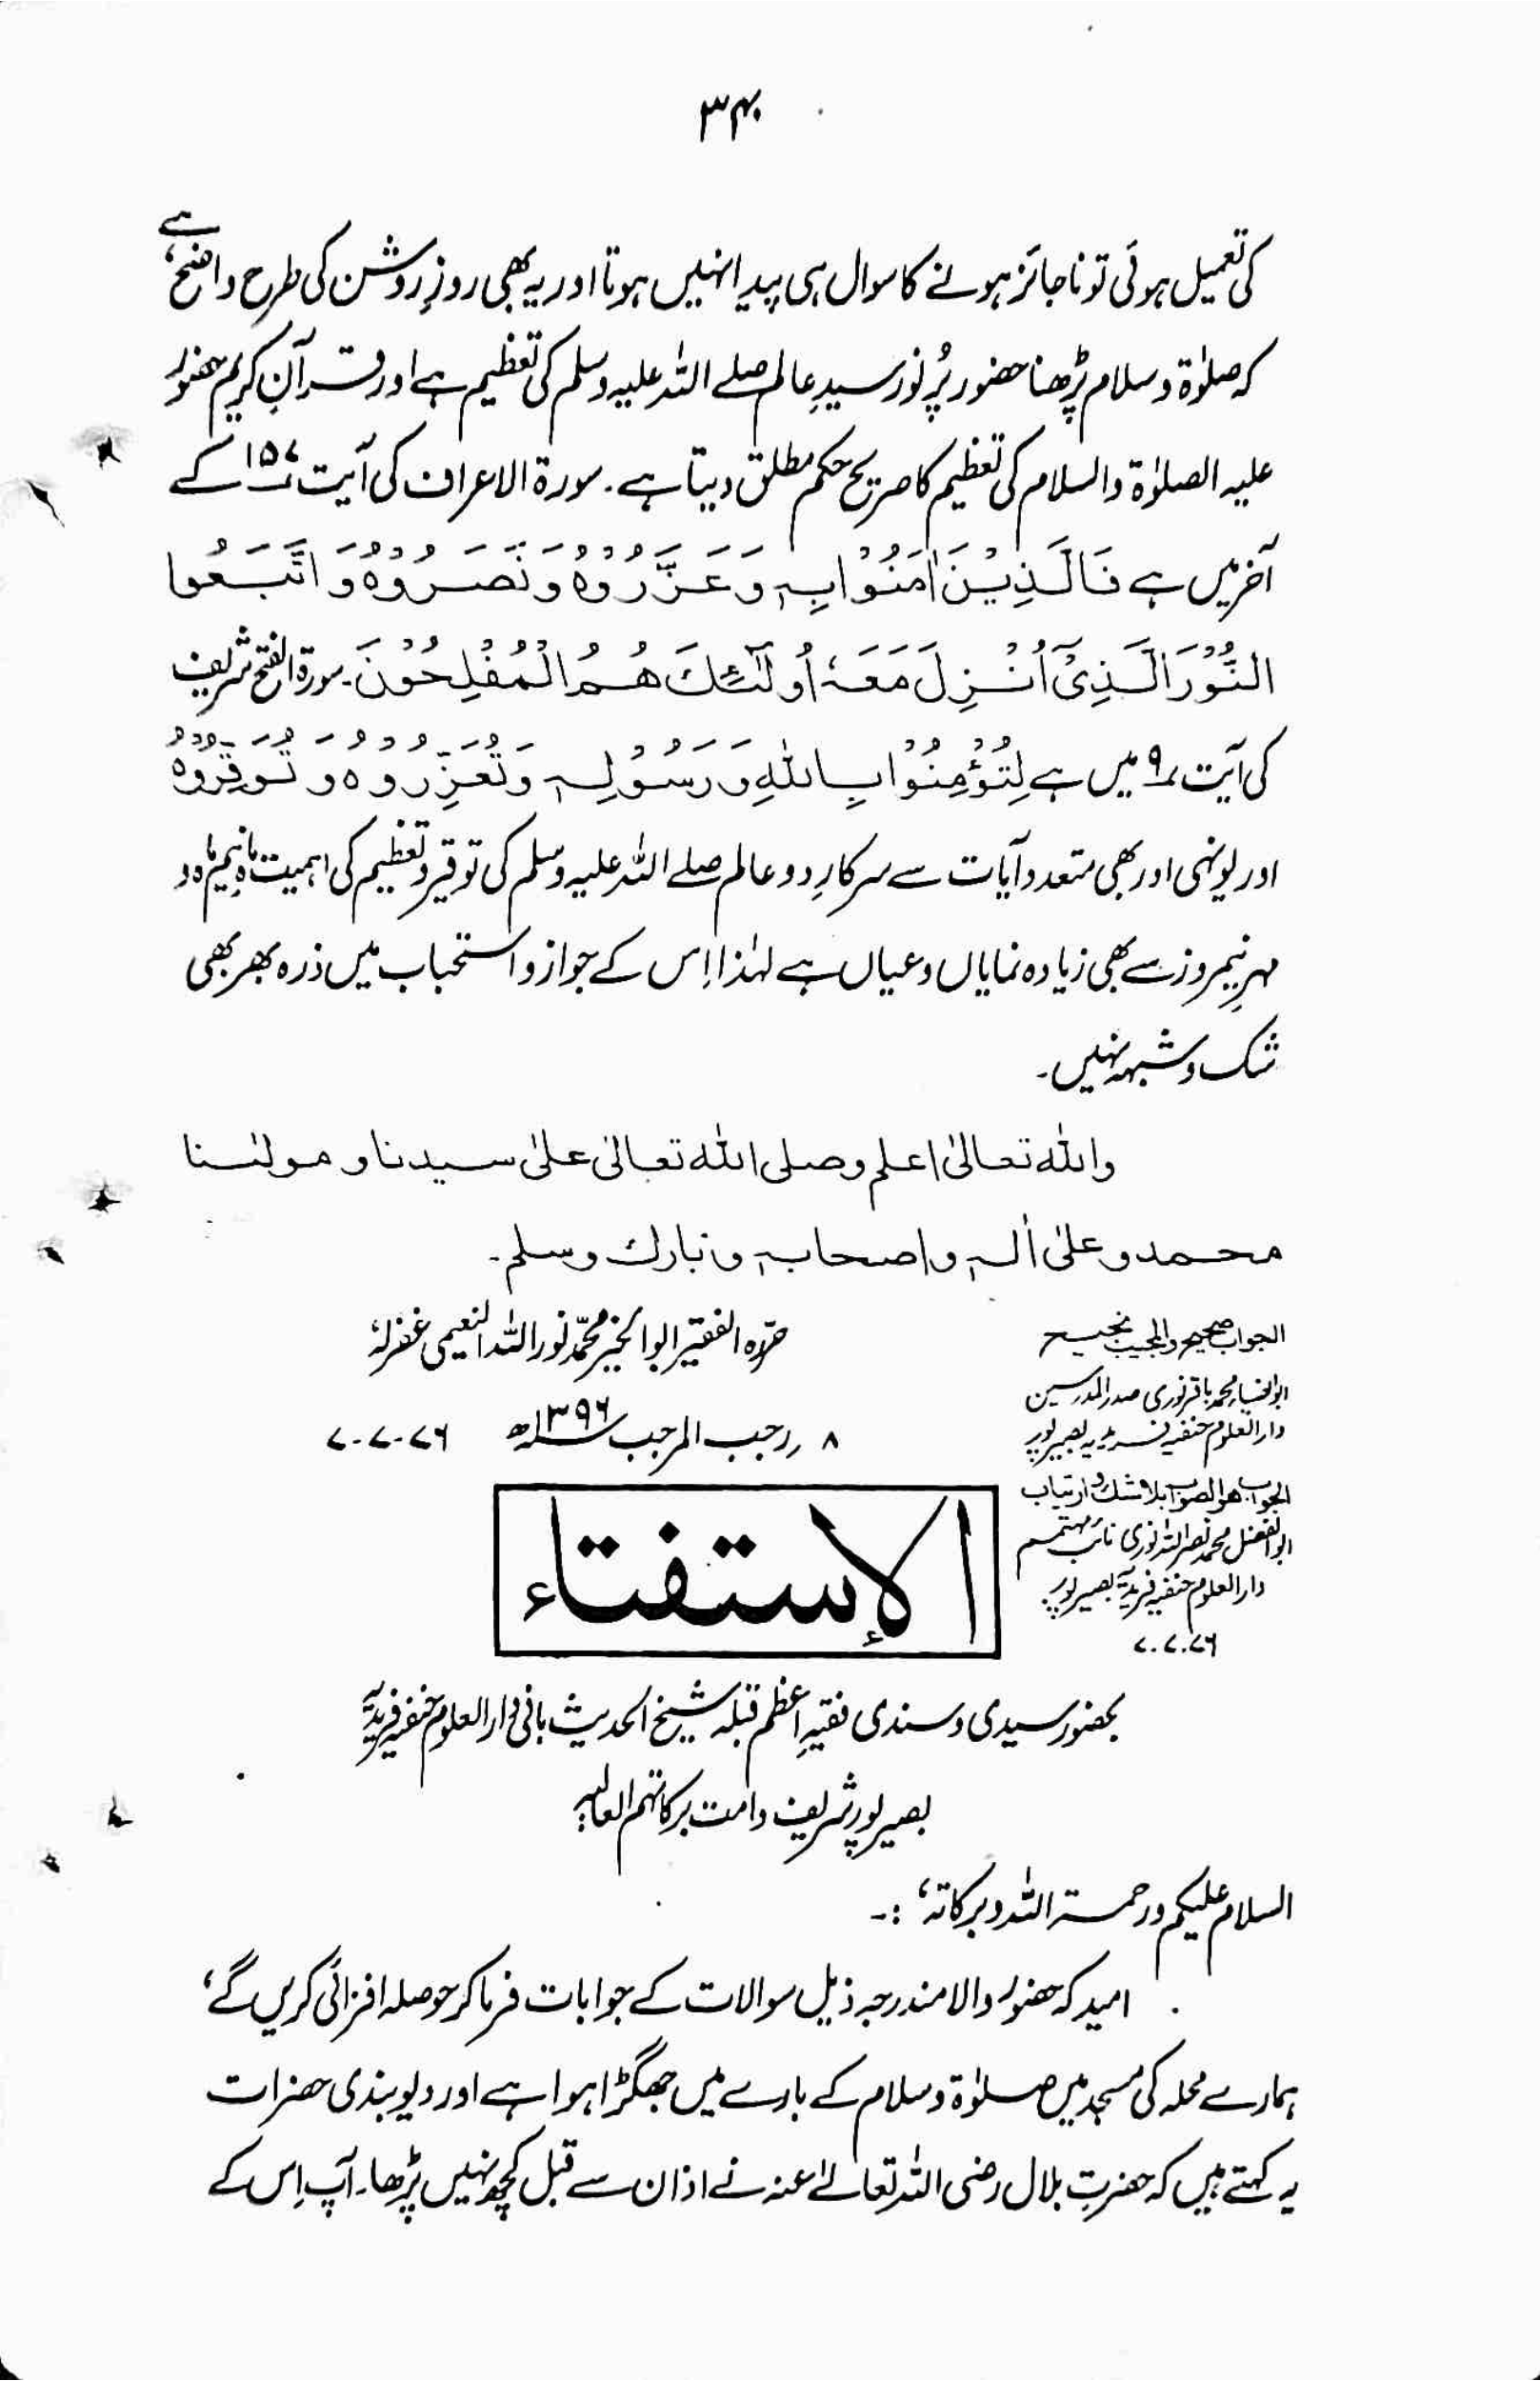 ۳۴۰
کی تعمیل ہوئی تو ناجائز ہونے کا سوال ہی پیدا نہیں ہوتا اور یہ بھی روزِ روشن کی طرح واضح ہے
کہ صلوٰۃ و سلام پڑھنا حضور پُر نور سیدِ عالم صلے اللہ علیہ وسلم کی تعظیم ہے اور قرآنِ کریم حضور
علیہ الصلوٰۃ والسلام کی تعظیم کا صریح حکم مطلق دیتا ہے۔ سورۃ الاعراف کی آیت ۱۵۷ کے
آخر میں ہے فَالَّذِیْنَ اٰمَنُوْا بِہٖ وَعَزَّرُوْہُ وَنَصَرُوْہُ وَاتَّبَعُوا
النُّوْرَ الَّذِیْٓ اُنْزِلَ مَعَہٗ اُولٰٓئِکَ ھُمُ الْمُفْلِحُوْنَ۔ سورۃ الفتح شریف
کی آیت ۹ میں ہے لِتُؤْمِنُوْا بِاللّٰہِ وَرَسُوْلِہٖ وَتُعَزِّرُوْہُ وَتُوَقِّرُوْہُ
اور یونہی اور بھی متعدد آیات سے سرکارِ دو عالم صلے اللہ علیہ وسلم کی توقیر و تعظیم کی اہمیت ماہِ نیم ماہ و
مہرِ نیمروز سے بھی زیادہ نمایاں و عیاں ہے لہٰذا اِس کے جواز و استحباب میں ذرہ بھر بھی
شک و شبہہ نہیں۔
واللہ تعالیٰ اعلم وصلی اللہ تعالیٰ علیٰ سیدنا و مولٰنا
محمد و علیٰ اٰلہٖ واصحابہٖ وبارک وسلم۔
حرّرہ الفقیر ابوالخیر محمّد نور اللہ النعیمی غفرلہٗ
۸ رجب المرجب ۱۳۹۶ھ ۷-۷-۷۶
الجواب صحیح والمجیب نجیح
ابوالضیاء محمد باقر نوری صدر المدرسین
دارالعلوم حنفیہ فریدیہ بصیرپور
الجواب ھو الصواب بلا شک و ارتیاب
ابوالفضل محمد نصر اللہ نوری نائب مہتمم
دارالعلوم حنفیہ فریدیہ بصیرپور
۷-۷-۷۶
الإستفتاء
بحضور سیدی و سندی فقیہِ اعظم قبلہ شیخ الحدیث بانی دارالعلوم حنفیہ فریدیہ
بصیرپور شریف دامت برکاتہم العالیہ
السلام علیکم ورحمۃ اللہ وبرکاتہٗ :۔
امید کہ حضور والا مندرجہ ذیل سوالات کے جوابات فرما کر حوصلہ افزائی کریں گے،
ہمارے محلہ کی مسجد میں صلوٰۃ و سلام کے بارے میں جھگڑا ہوا ہے اور دیوبندی حضرات
یہ کہتے ہیں کہ حضرتِ بلال رضی اللہ تعالےٰ عنہ نے اذان سے قبل کچھ نہیں پڑھا۔ آپ اِس کے